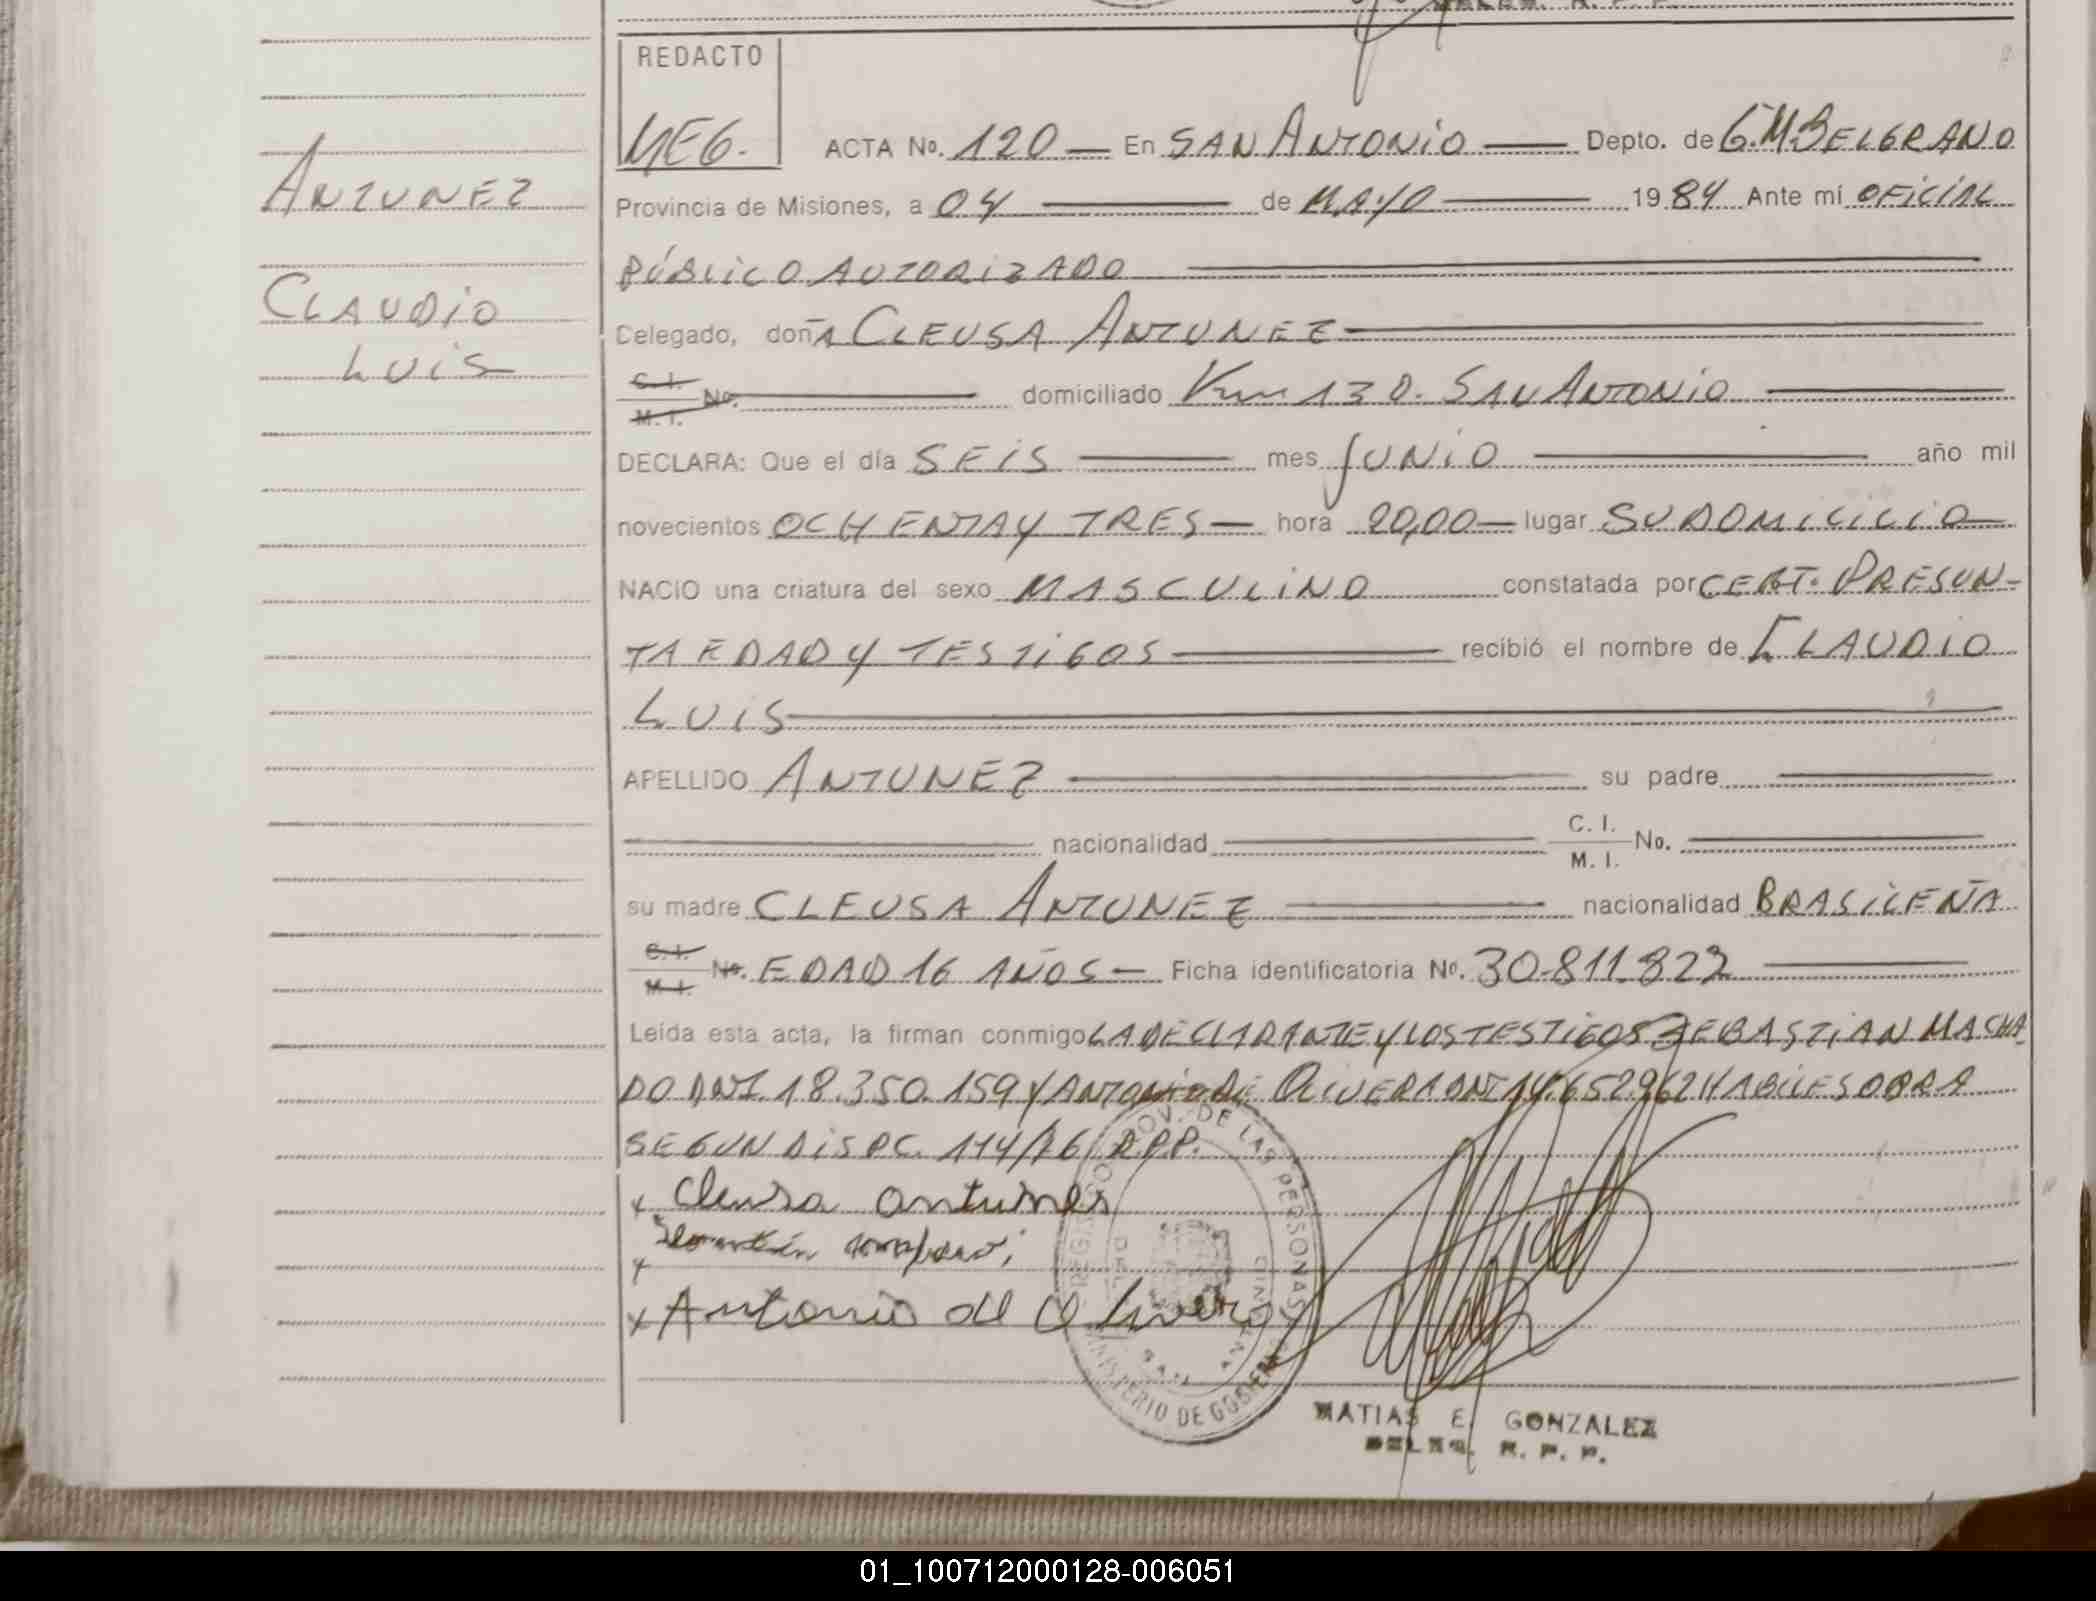 REDACTO
MEG.
ACTA No. 120 En SAN ANTONIO Depto. de G.M.BELGRANO
ANTUNEZ
Provincia de Misiones, a 04 de MAYO 1984 Ante mí OFICIAL
PÚBLICO AUTORIZADO
CLAUDIO
LUIS
Delegado, doñA CLEUSA ANTUNEZ
C. I.
M. I. No. domiciliado Km 130. SAN ANTONIO
DECLARA: Que el día SEIS mes JUNIO año mil
novecientos OCHENTA Y TRES hora 20,00 lugar SU DOMICILIO
NACIO una criatura del sexo MASCULINO constatada por CERT. PRESUN-
TA EDAD Y TESTIGOS recibió el nombre de CLAUDIO
LUIS
APELLIDO ANTUNEZ su padre
nacionalidad C. I.
M. I. No.
su madre CLEUSA ANTUNEZ nacionalidad BRASILEÑA
C. I.
M. I. No. EDAD 16 AÑOS Ficha identificatoria No. 30.811.822
Leída esta acta, la firman conmigo LA DECLARANTE Y LOS TESTIGOS SEBASTIAN MACHA-
DO DNI. 18.350.159 Y ANTONIO DE OLIVERA DNI 14.652.962 HABILES OBRA
SEGUN DISPC. 114/76 R.P.P.
x Cleusa antunes
x
x Antonio de Olivera
REGISTRO PROV. DE LAS PERSONAS
MINISTERIO DE GOBIERNO
MATIAS E. GONZALEZ
DELEG. R. P. P.
01_100712000128-006051